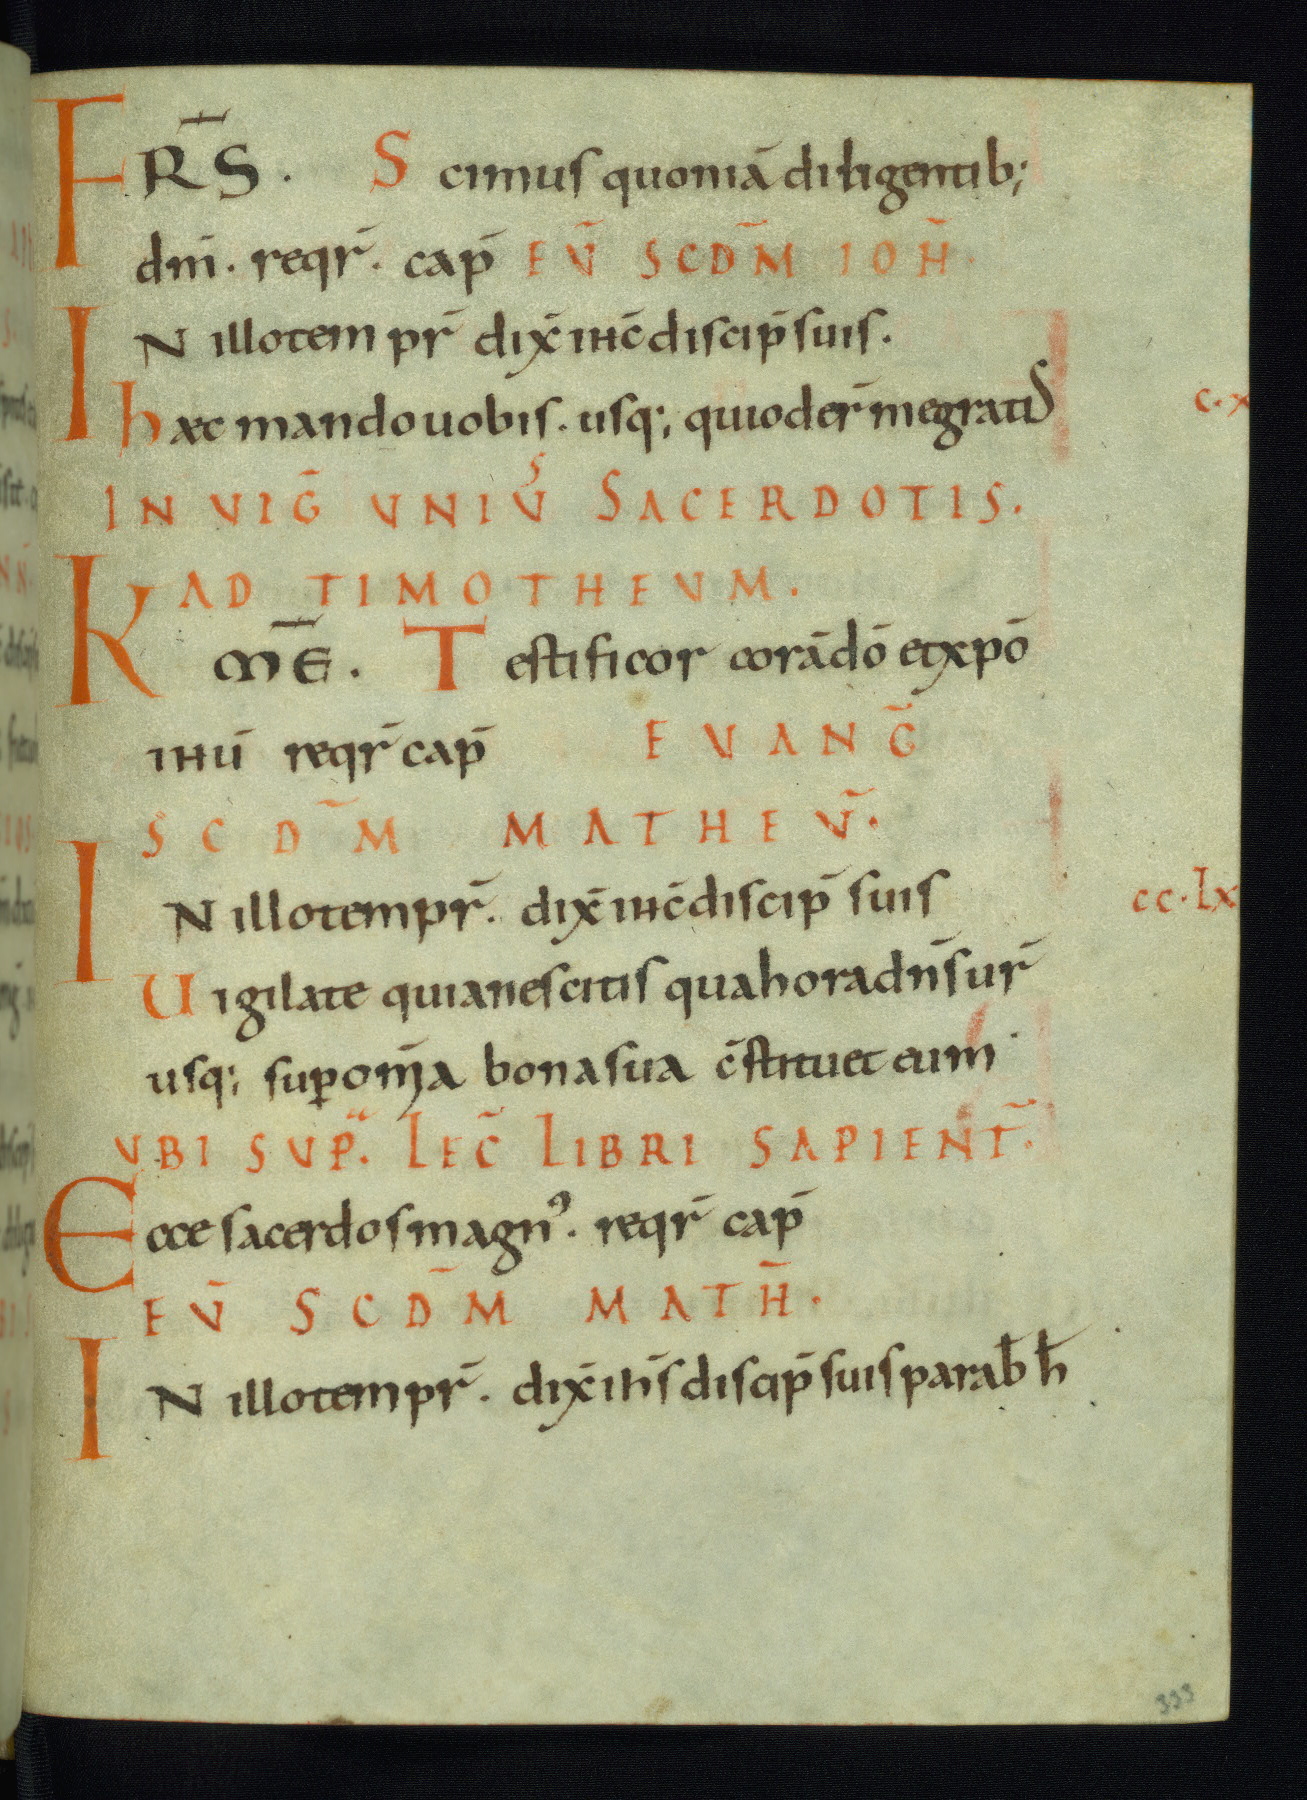 FRS̄. Scimus quoniā diligentib;
dm̄. reqr̄. cap̄ EV̄ SCDM̄ IOH̄.
IN illo tempr̄ dix̄ ihc̄ discip̄ suis.
haec mando uobis. usq; qui oder̄ me gratis
IN VIḠ VNIVˢ SACERDOTIS.
AD TIMOTHEVM.
KM̄E. Testificor corā dō et xpō
ihū reqr̄ cap̄ EVANḠ
SCDM̄ MATHEV̄.
IN illo tempr̄. dix̄ ihc̄ discip̄ suis
cc.lx
Uigilate quia nescitis qua hora dn̄s ur̄
usq; sup om̄a bona sua c̄stituet eum
VBI SVP̄. LEC̄ LIBRI SAPIENT̄.
Ecce sacerdos magn᾿. reqr̄ cap̄
EV̄ SCDM̄ MATH̄.
IN illo tempr̄. dix̄ ihs̄ discip̄ suis parab̄ h̄
333